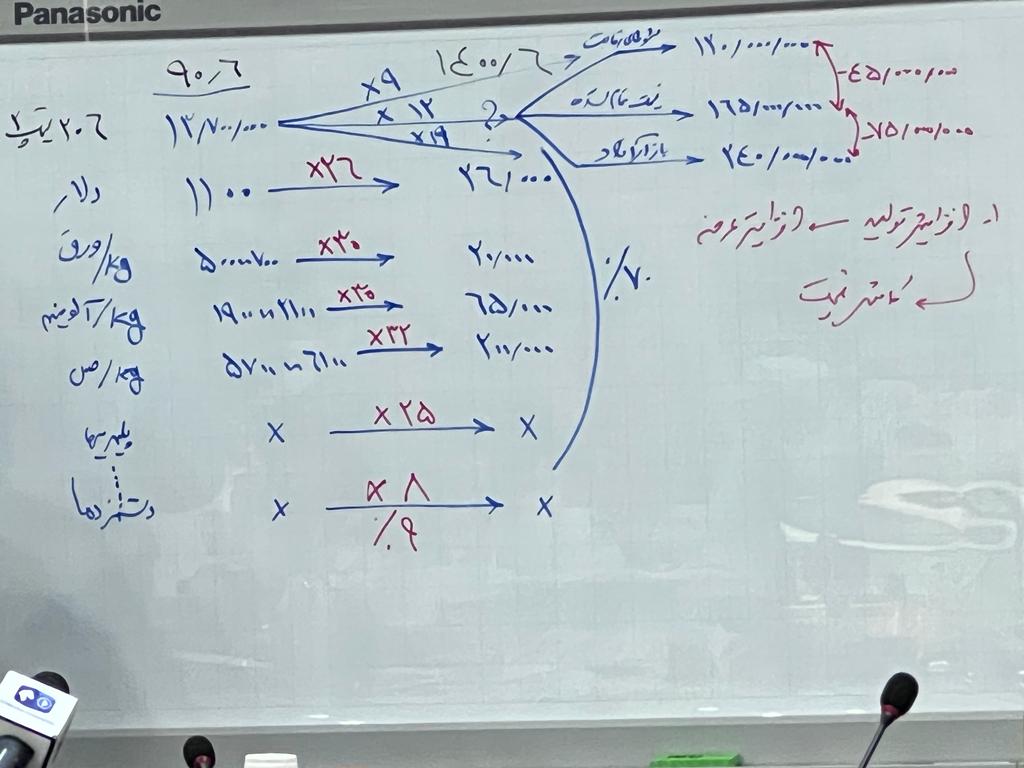 Panasonic
۹۰/۶ ۱۴۰۰/۶
۲۰۶ تیپ ۲ ۱۳/۷۰۰/۰۰۰ ×۹ × ۱۲ ×۱۹ ?
شورای رقابت ۱۲۰/۰۰۰/۰۰۰
قیمت تمام شده ۱۶۵/۰۰۰/۰۰۰
بازار آزاد ۲۴۰/۰۰۰/۰۰۰
-۴۵/۰۰۰/۰۰۰
-۷۵/۰۰۰/۰۰۰
دلار ۱۱۰۰ ×۲۶ ۲۶/۰۰۰
ورق/kg ×۳۰ ۲۰/۰۰۰
آلومینیم/kg ×۳۰ ۶۵/۰۰۰
مس/kg ×۳۲ ۲۰۰/۰۰۰
پلیمرها × ×۲۵ ×
دستمزدها × × ۸ ×
٪۹
٪۷۰
۱- افزایش تولید ← افزایش عرضه
کاهش قیمت